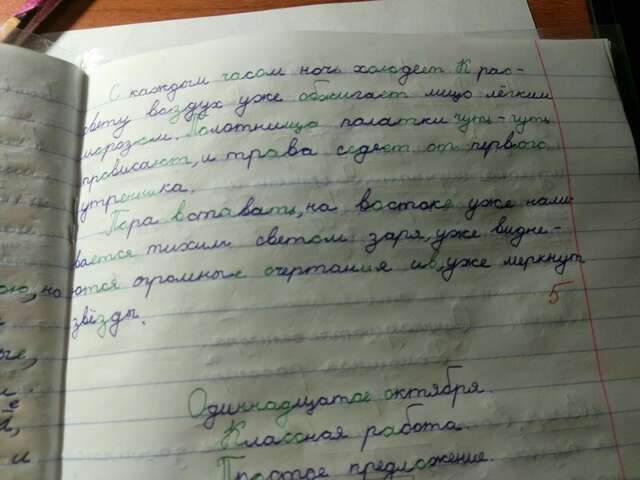 С каждым часом ночь холодеет. К рас-
свету воздух уже обжигает лицо лёгким
морозом. Полотнища палатки чуть-чуть
провисают, и трава седеет от первого
утренника.
Пора вставать, на востоке уже нали-
вается тихим светом заря, уже видне-
ются огромные очертания ив, уже меркнут
звёзды.
5
Одиннадцатое октября.
Классная работа.
Простое предложение.